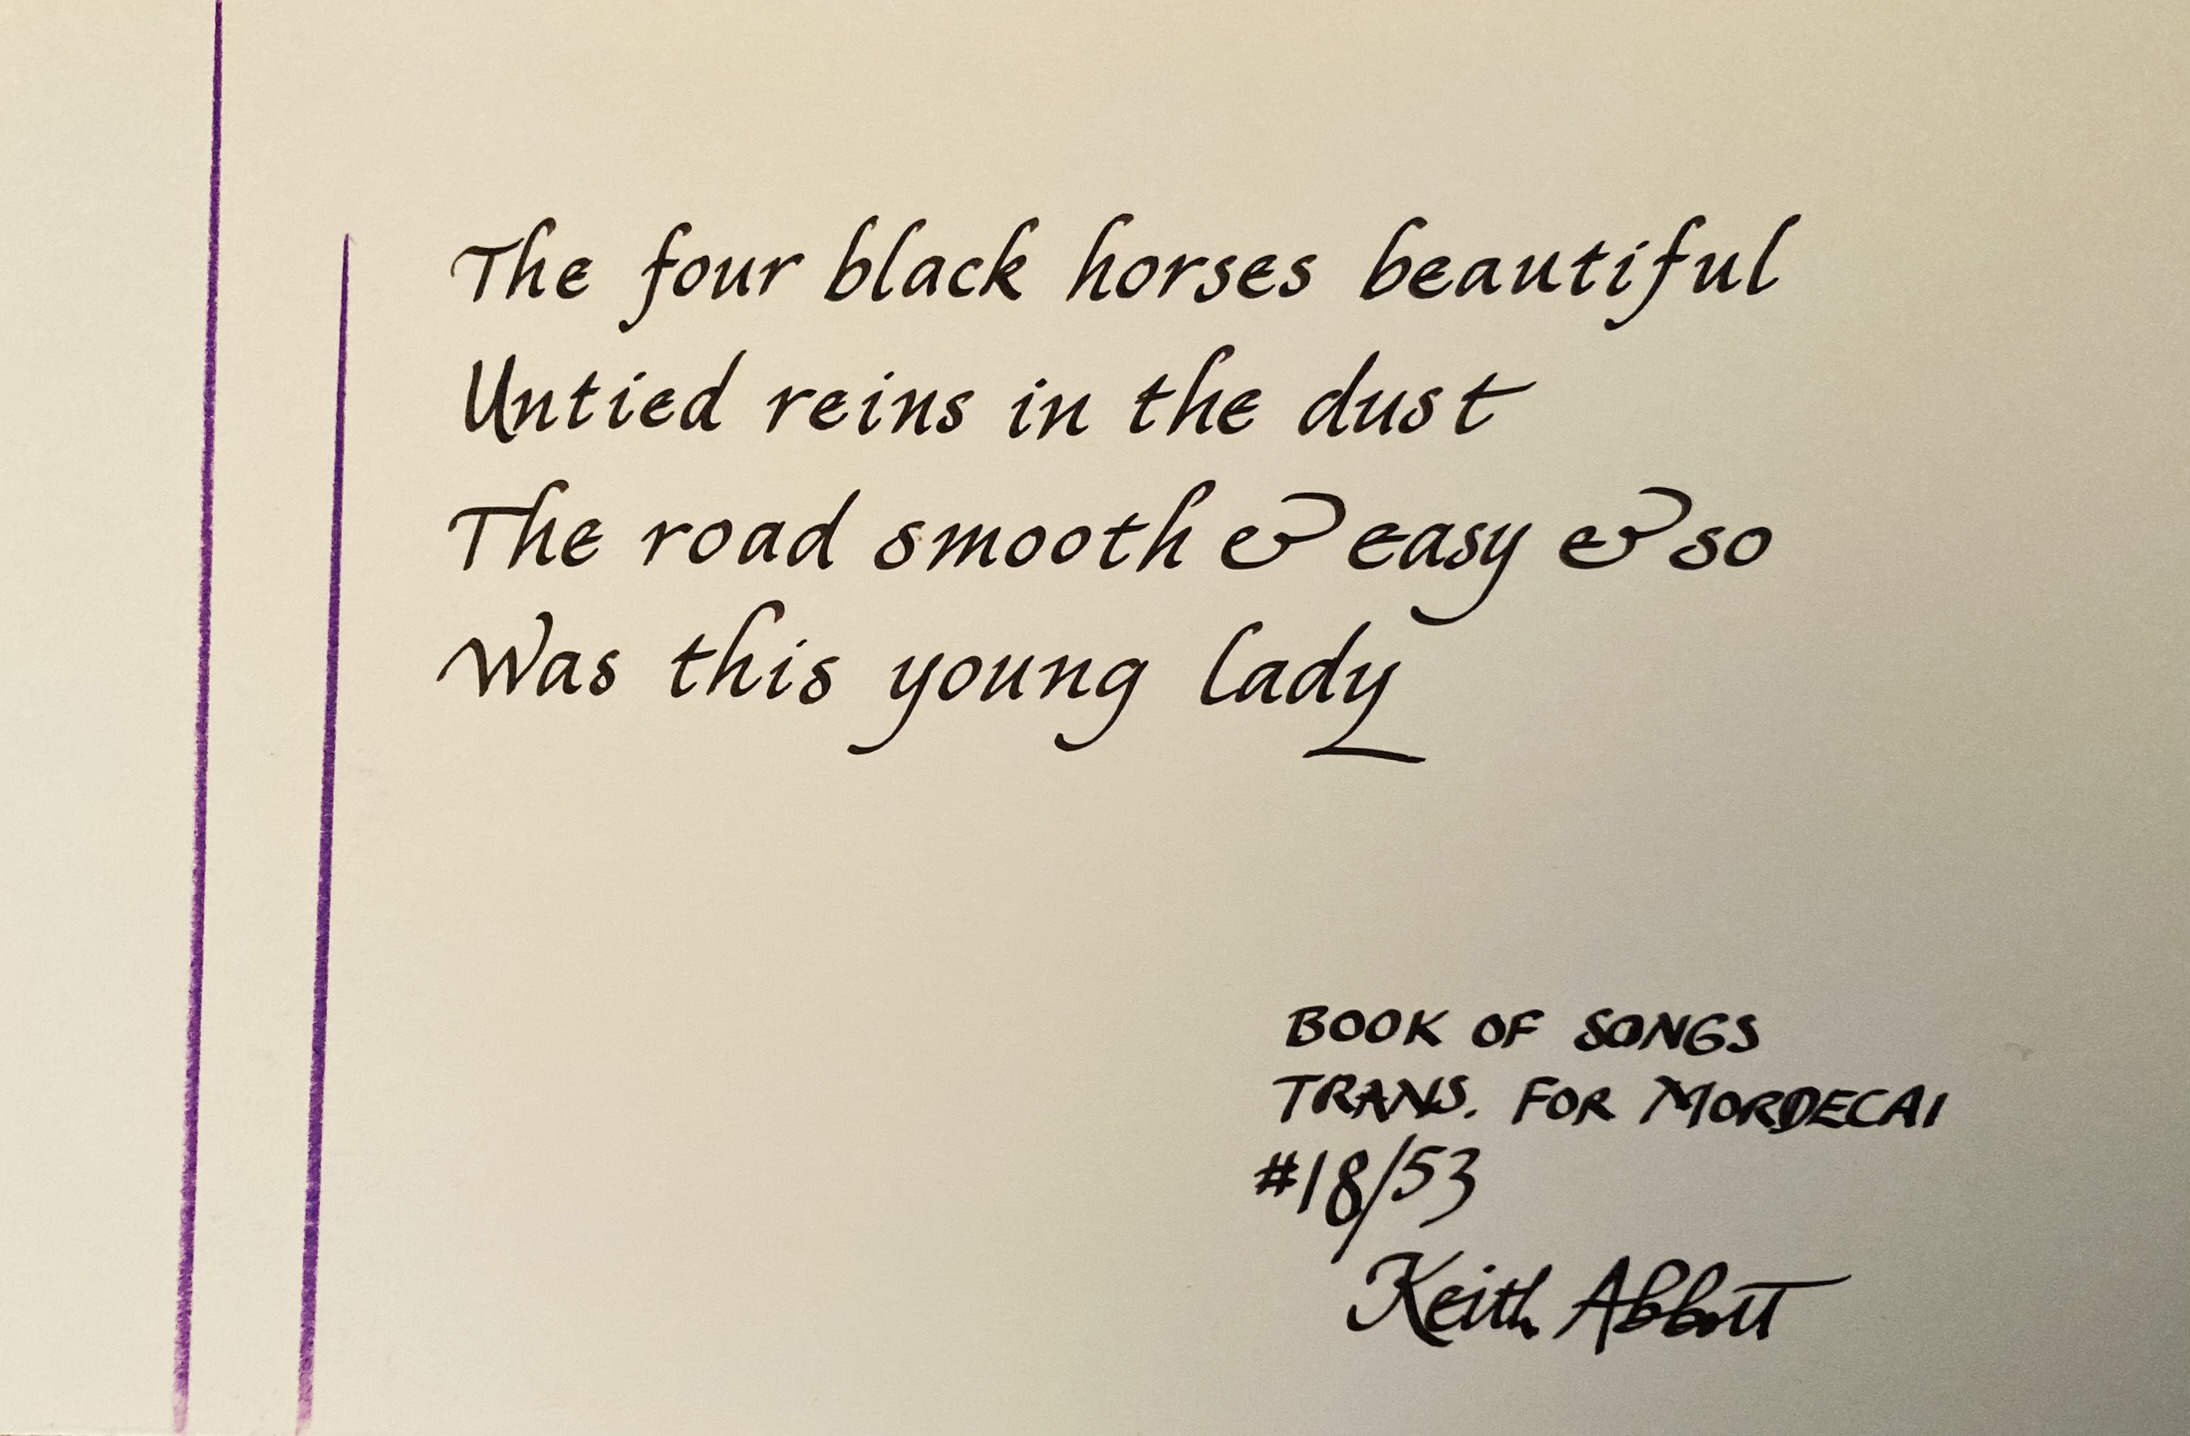 The four black horses beautiful
Untied reins in the dust
The road smooth & easy & so
Was this young lady
BOOK OF SONGS
TRANS. FOR MORDECAI
#18/53
Keith Abbott